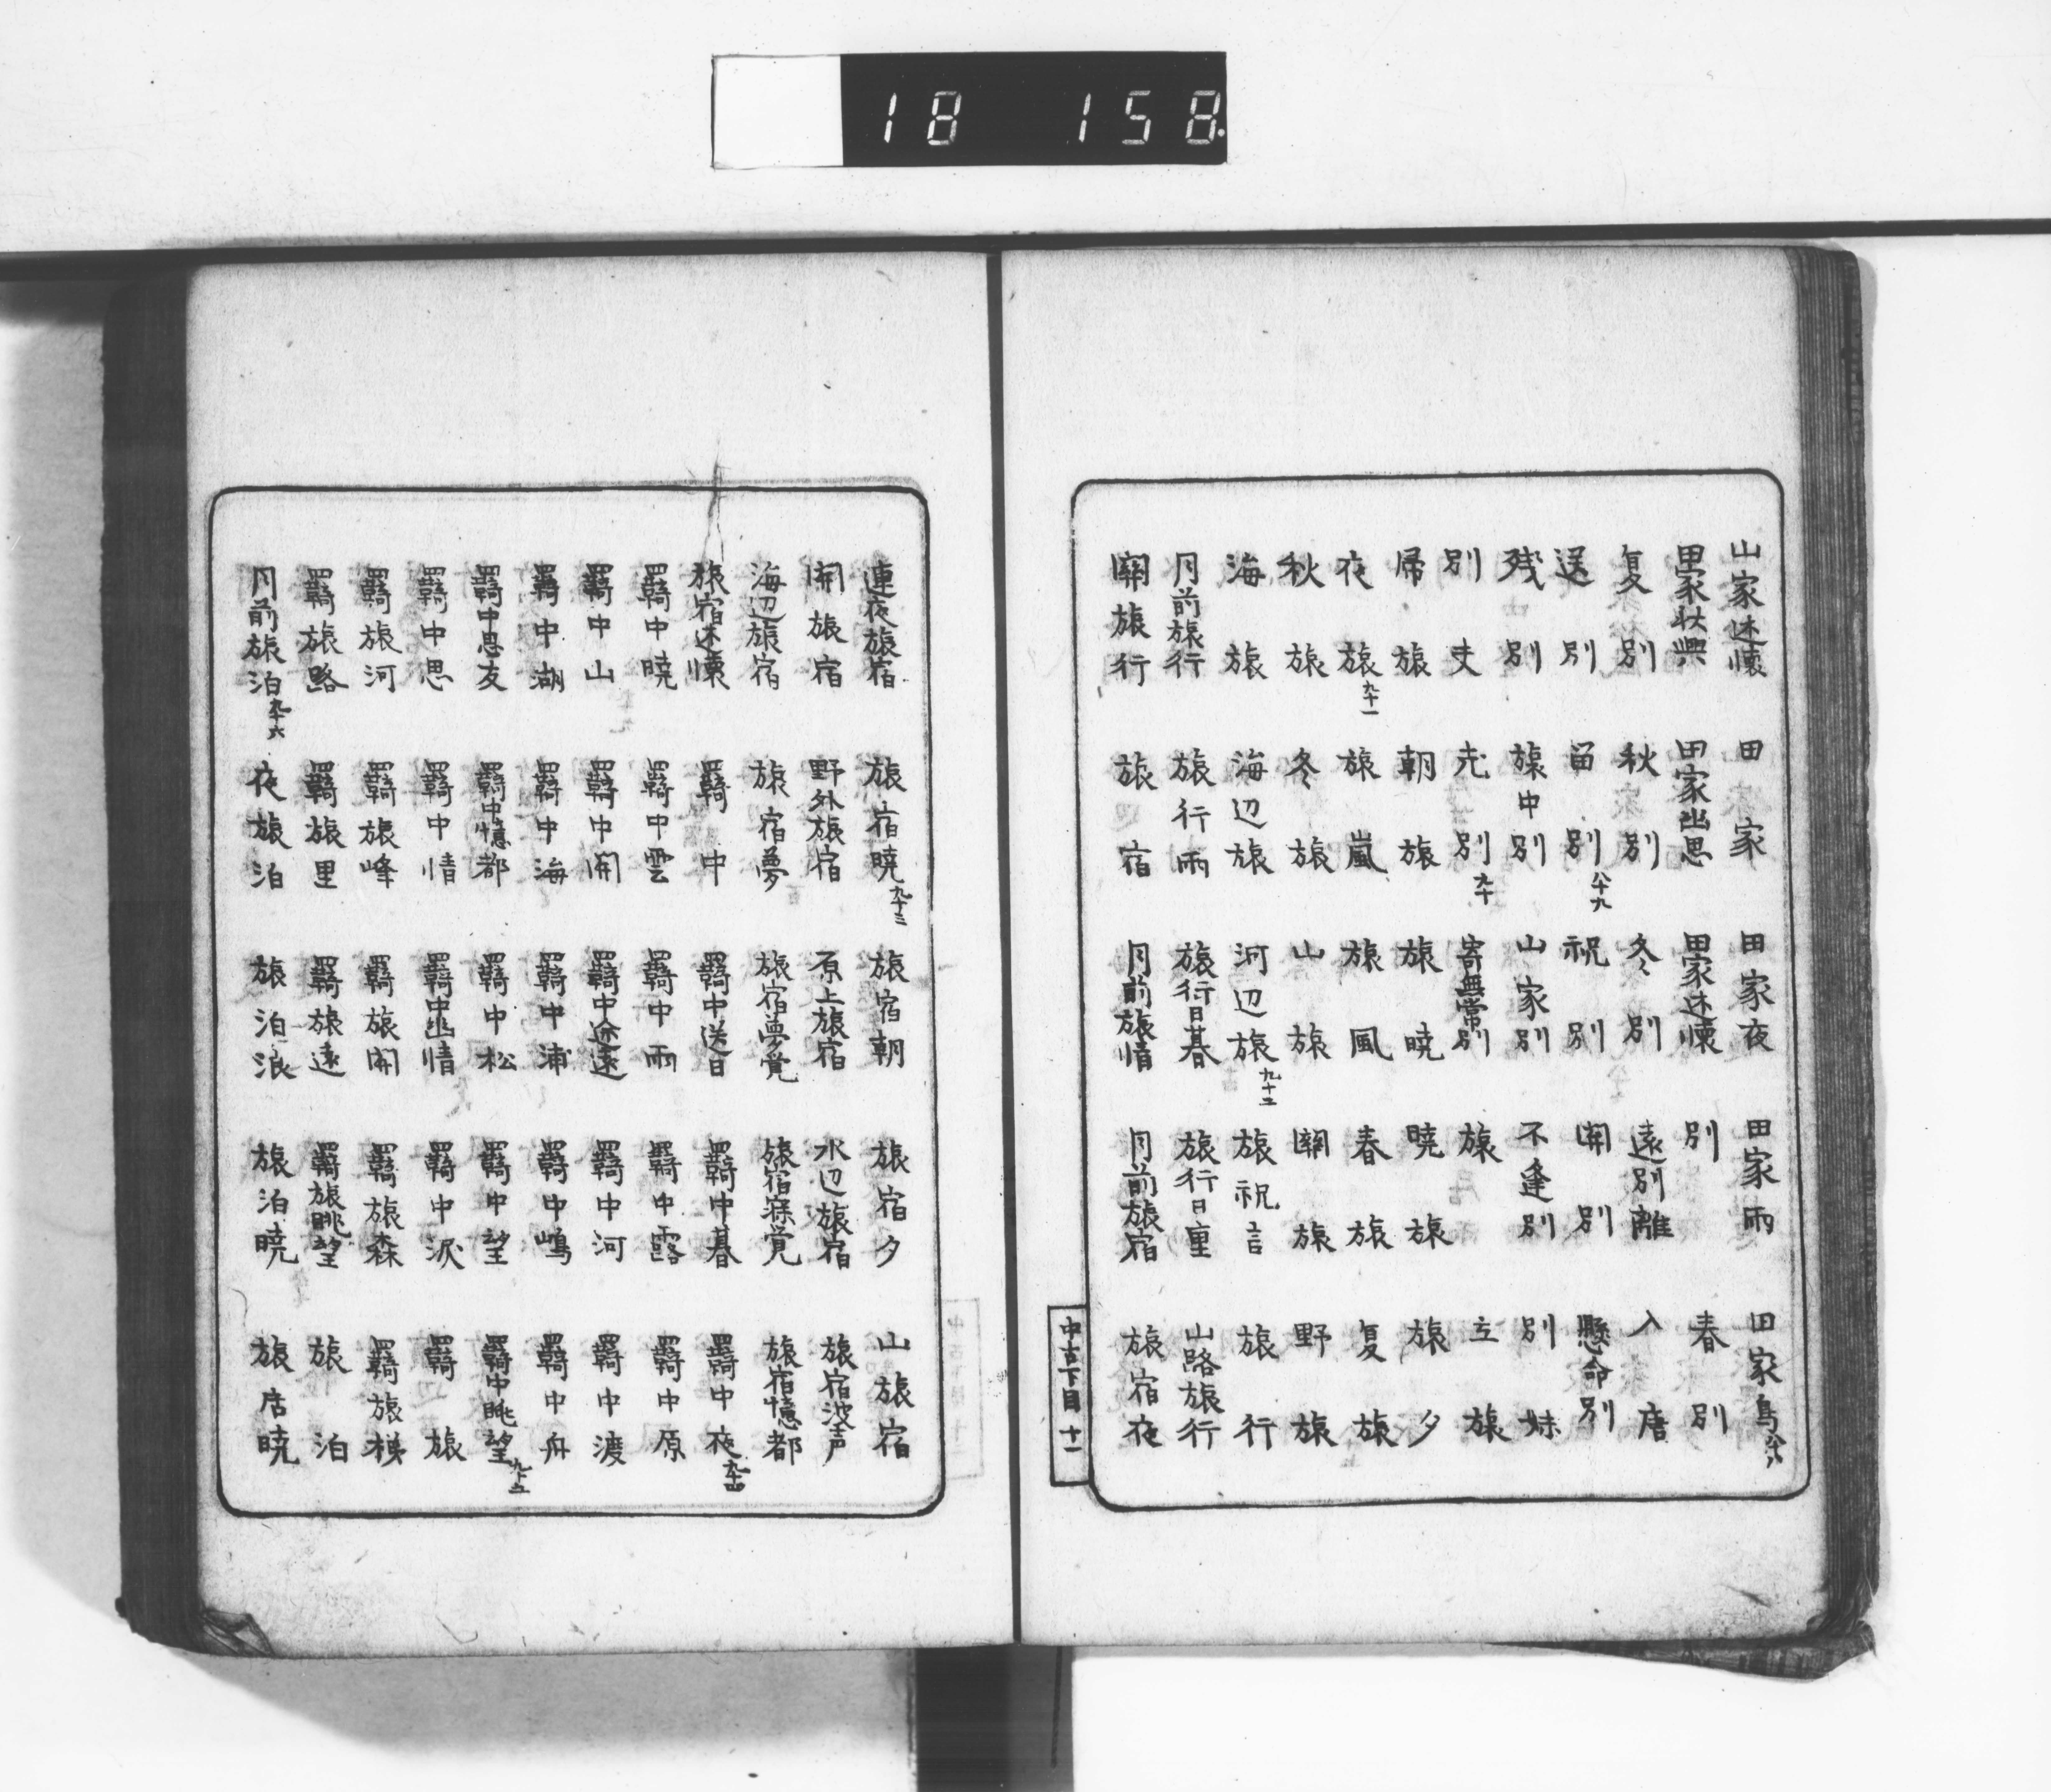 18 158
山家述懐 田家 田家夜 田家雨 田家鳥 八十八
田家秋興 田家幽思 田家述懐 別 春別
夏別 秋別 冬別 遠別離 入唐
送別 留別 八十九 祝別 関別 懸命別
残別 旅中別 山家別 不逢別 別妹
別丈 恋別 九十 寄無常別 旅 立旅
帰旅 朝旅 旅暁 暁旅 旅夕
夜旅 九十一 旅嵐 旅風 春旅 夏旅
秋旅 冬旅 山旅 関旅 野旅
海旅 海辺旅 河辺旅 九十二 旅祝言 旅行
月前旅行 旅行雨 旅行日暮 旅行日重 山路旅行
関旅行 旅宿 月前旅情 月前旅宿 旅宿夜
中古下目 十一
連夜旅宿 旅宿暁 九十三 旅宿朝 旅宿夕 山旅宿
関旅宿 野外旅宿 原上旅宿 水辺旅宿 旅宿波声
海辺旅宿 旅宿夢 旅宿夢覚 旅宿寐覚 旅宿憶都
旅宿述懐 羇中 羇中送日 羇中暮 羇中夜 九十四
羇中暁 羇中雲 羇中雨 羇中露 羇中原
羇中山 羇中関 羇中途遠 羇中河 羇中渡
羇中湖 羇中海 羇中浦 羇中嶋 羇中舟
羇中思友 羇中憶都 羇中松 羇中望 羇中眺望 九十五
羇中思 羇中情 羇中幽情 羇中涙 羇旅
羇旅河 羇旅峰 羇旅関 羇旅森 羇旅梯
羇旅路 羇旅里 羇旅遠 羇旅眺望 旅泊
月前旅泊 九十六 夜旅泊 旅泊浪 旅泊暁 旅店暁